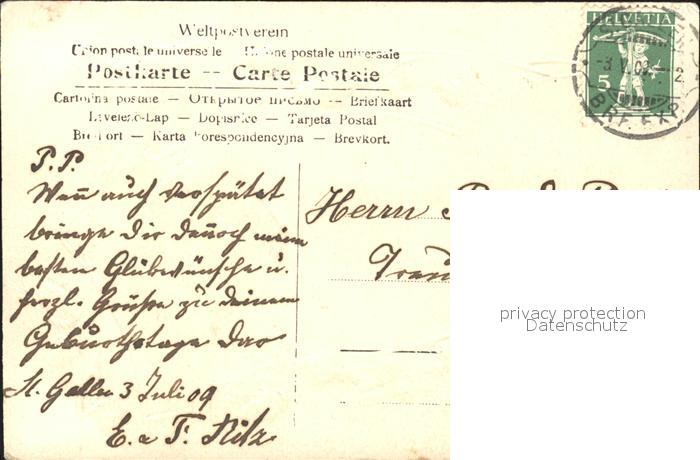 Weltpostverein
Union postale universelle Unione postale universale
Postkarte -- Carte Postale
Cartolina postale — Открытое письмо -- Briefkaart
Levelező-Lap — Dopisnice — Tarjeta Postal
Brefkort — Karta korespondencyjna — Brevkort.
HELVETIA
5
BRF. EXP.
P.P.
Wenn auch verspätet
bringe Dir dennoch meine
besten Glückwünsche u.
herzl. Grüße zu deinem
Geburtstage dar
St. Gallen 3 Juli 09
E. & F.
Herrn
privacy protection
Datenschutz